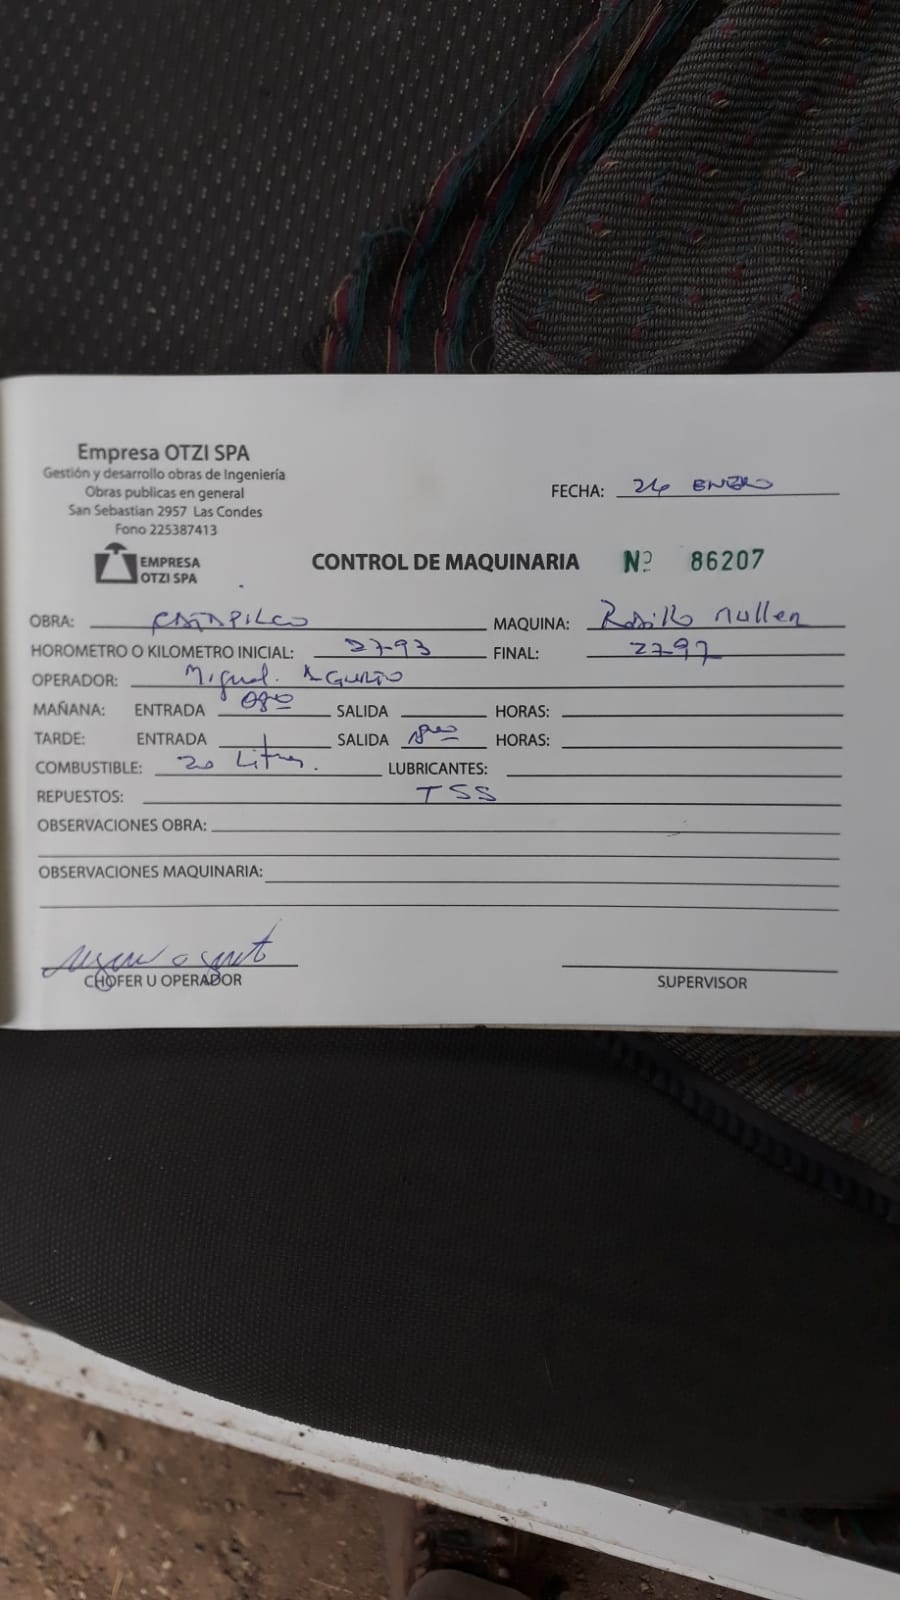 Empresa OTZI SPA
Gestión y desarrollo obras de Ingeniería
Obras publicas en general
San Sebastian 2957 Las Condes
Fono 225387413
FECHA: 24 ENERO
EMPRESA
OTZI SPA
CONTROL DE MAQUINARIA Nº 86207
OBRA: CATAPILCO MAQUINA: Rodillo Muller
HOROMETRO O KILOMETRO INICIAL: 2793 FINAL: 2797
OPERADOR: Miguel. AGURTO
MAÑANA: ENTRADA 08⁰⁰ SALIDA HORAS:
TARDE: ENTRADA SALIDA 18⁰⁰ HORAS:
COMBUSTIBLE: 20 Litros. LUBRICANTES:
REPUESTOS: TSS
OBSERVACIONES OBRA:
OBSERVACIONES MAQUINARIA:
CHOFER U OPERADOR
SUPERVISOR